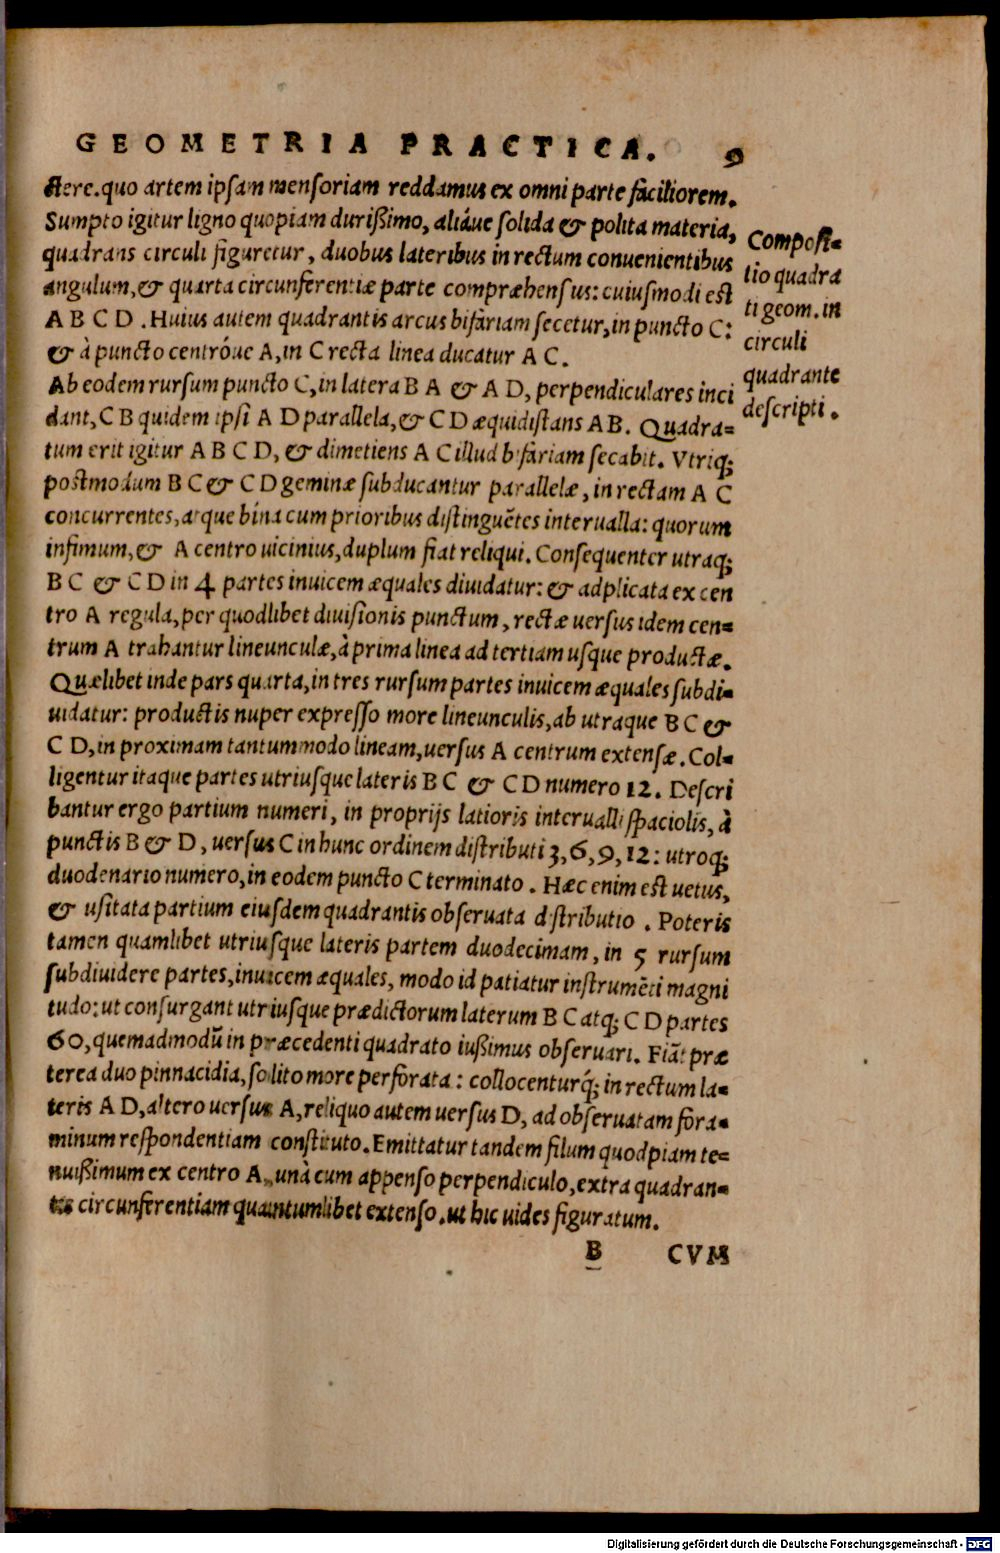 GEOMETRIA PRACTICA. 9
ctere. quo artem ipsam mensoriam reddamus ex omni parte faciliorem.
Sumpto igitur ligno quopiam durißimo, aliáue solida & polita materia,
quadrans circuli figuretur, duobus lateribus in rectum conuenientibus
angulum, & quarta circunferentiæ parte compræhensus: cuiusmodi est
A B C D. Huius autem quadrantis arcus bifariam secetur, in puncto C:
& à puncto centróue A, in C recta linea ducatur A C.
Ab eodem rursum puncto C, in latera B A & A D, perpendiculares inci
dant, C B quidem ipsi A D parallela, & C D æquidistans A B. Quadra=
tum erit igitur A B C D, & dimetiens A C illud bifariam secabit. Vtriq;
postmodum B C & C D geminæ subducantur parallelæ, in rectam A C
concurrentes, atque bína cum prioribus distinguẽtes interualla: quorum
infimum, & A centro uicinius, duplum fiat reliqui. Consequenter utraq;
B C & C D in 4 partes inuicem æquales diuidatur: & adplicata ex cen
tro A regula, per quodlibet diuisionis punctum, rectæ uersus idem cen=
trum A trahantur lineunculæ, à prima linea ad tertiam usque productæ.
Quælibet inde pars quarta, in tres rursum partes inuicem æquales subdi=
uidatur: productis nuper expresso more lineunculis, ab utraque B C &
C D, in proximam tantummodo lineam, uersus A centrum extensæ. Col=
ligentur itaque partes utriusque lateris B C & C D numero 12. Descri
bantur ergo partium numeri, in proprijs latioris interualli spaciolis, à
punctis B & D, uersus C in hunc ordinem distributi 3, 6, 9, 12: utroq;
duodenario numero, in eodem puncto C terminato. Hæc enim est uetus,
& usitata partium eiusdem quadrantis obseruata distributio. Poteris
tamen quamlibet utriusque lateris partem duodecimam, in 5 rursum
subdiuidere partes, inuicem æquales, modo id patiatur instrumẽti magni
tudo: ut consurgant utriusque prædictorum laterum B C atq; C D partes
60, quemadmodũ in præcedenti quadrato iußimus obseruari. Fiãt præ
terea duo pinnacidia, solito more perforata: collocenturq́; in rectum la=
teris A D, altero uersus A, reliquo autem uersus D, ad obseruatam fora=
minum respondentiam constituto. Emittatur tandem filum quodpiam te=
nuißimum ex centro A, unà cum appenso perpendiculo, extra quadran=
tis circunferentiam quantumlibet extenso. ut hic uides figuratum.
B CVM
Composi=
tio quadra
ti geom. in
circuli
quadrante
descripti.
Digitalisierung gefördert durch die Deutsche Forschungsgemeinschaft - DFG